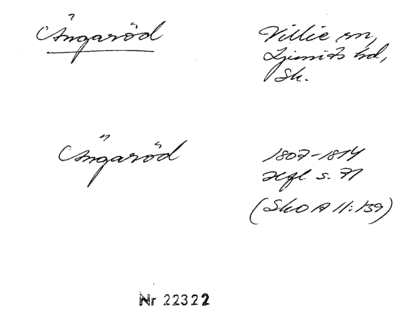 Ängaröd
Villie sn,
Ljunits hd,
Sk.
Ängaröd
1807-1814
Hfl s. 71
(SkO A 11:139)
Nr 22322